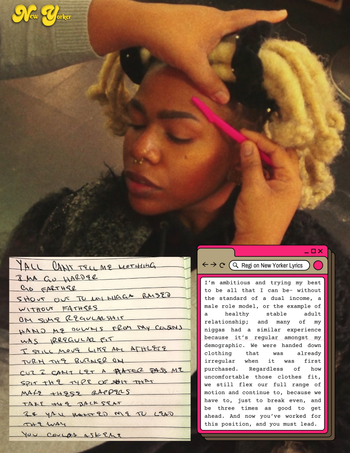 New Yorker
YALL CAN'T TELL ME NOTHING
IMA GO HARDER
GO FARTHER
SHOUT OUT TO MY NIGGA RAISED
WITHOUT FATHERS
ON SOME REGULAR SHIT
HAND ME DOWNS FROM MY COUSINS
WAS IRREGULAR FIT
I STILL MOVE LIKE AN ATHLETE
TURN THE BURNER ON
CUZ I CAN'T LET A HATER PASS ME
SPIT THE TYPE OF SHIT THAT
MAKE THESE RAPPERS
TAKE THE BACK SEAT
IF YALL WANTED ME TO LEAD
THE WAY
YOU COULDA ASKED
Regi on New Yorker Lyrics
I'm ambitious and trying my best
to be all that I can be- without
the standard of a dual income, a
male role model, or the example of
a healthy stable adult
relationship; and many of my
niggas had a similar experience
because it's regular amongst my
demographic. We were handed down
clothing that was already
irregular when it was first
purchased. Regardless of how
uncomfortable those clothes fit,
we still flex our full range of
motion and continue to, because we
have to, just to break even, and
be three times as good to get
ahead. And now you've worked for
this position, and you must lead.